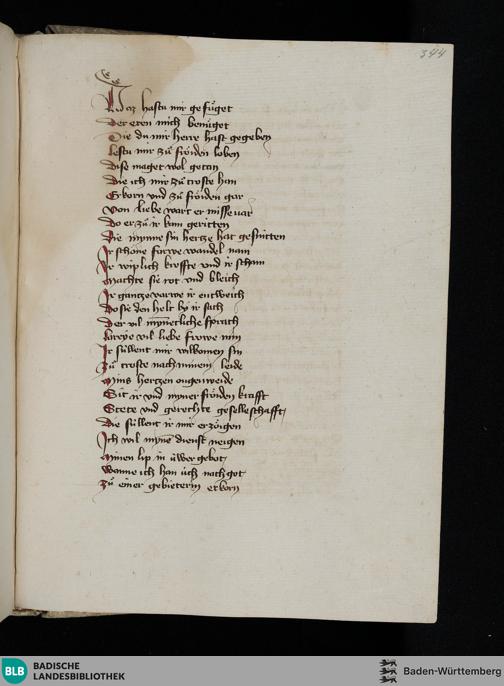 344
Vor hastu mir gefüget
Der eren mich benüget
Die du mir herre hast gegeben
lestu mir zü fröiden loben
Dise maget wol getan
Die ich mir zü troste han
Erkorn vnd zü fröiden gar
Von liebe wart er missevar
Do er zü ir kam geritten
Die mynne sin hertze hat gesnitten
Ir schöne farwe wandel nam
Ir wiplich kreffte vnd ir scham
Machte sie rot vnd bleich
Ir gantze varwe ir entweich
Do sie den helt by ir sach
Der vil mynnecliche sprach
vil liebe frowe min
Ir süllent mir wilkomen sin
Zü troste nach minem leide
Mins hertzen ougenweide
Sit ir vnd myner fröiden krafft
Stete vnd gerechte geselleschafft
Die süllent ir mir erzöigen
Ich wil myne dienst neigen
Minen lip in üwer gebot
Wanne ich han üch nach got
Zü einer gebieterin erkorn
BLB BADISCHE
LANDESBIBLIOTHEK
Baden-Württemberg